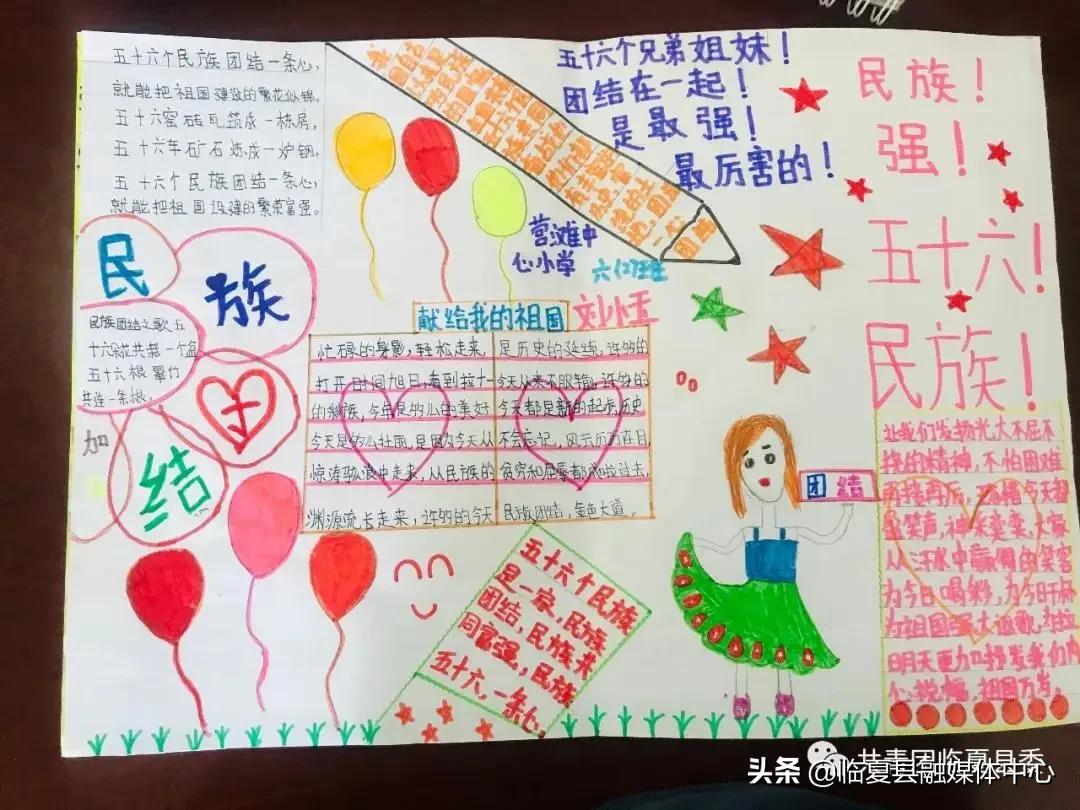 五十六个民族团结一条心,
就能把祖国建设的繁花似锦。
五十六窑砖瓦筑成一栋房,
五十六车矿石炼成一炉钢,
五十六个民族团结一条心,
就能把祖国设建的繁荣富强。
五十六个兄弟姐妹!
团结在一起!
是最强!
最厉害的!
民族!
强!
五十六!
民族!
营滩中
心小学
六(2)班
民
族
团
结
加
民族团结之歌五
十六朵花共栽一个盆
五十六根翠竹
共连一条根。
献给我的祖国
刘小玉
忙碌的身影,轻松走来,
打开时间旭日,看到拉
的彝族,今年是的么的美好
今天是的么壮丽,是因为今天从
惊涛骇浪中走来,从民族的
渊源流长走来,许的的今天
是历史的延续,许的的
今天从来不服输,许的的
今天都是新的起步,历史
不会忘记,风云历历在目,
贫穷和屈辱者
过去,
民族团结,金色大道。
团结
五十六个民族
是一家,民族
团结,民族共
同富强,民族
五十六,一条心。
让我们发扬光大不屈不
挠的精神,不怕困难
今天
笑声,神采奕奕,大家
从汗水中赢得的笑容
为今日喝彩,为今日
为祖国强大
明天更加
发我们内
心祝福,祖国万岁。
共青团临夏县委
头条 @临夏县融媒体中心